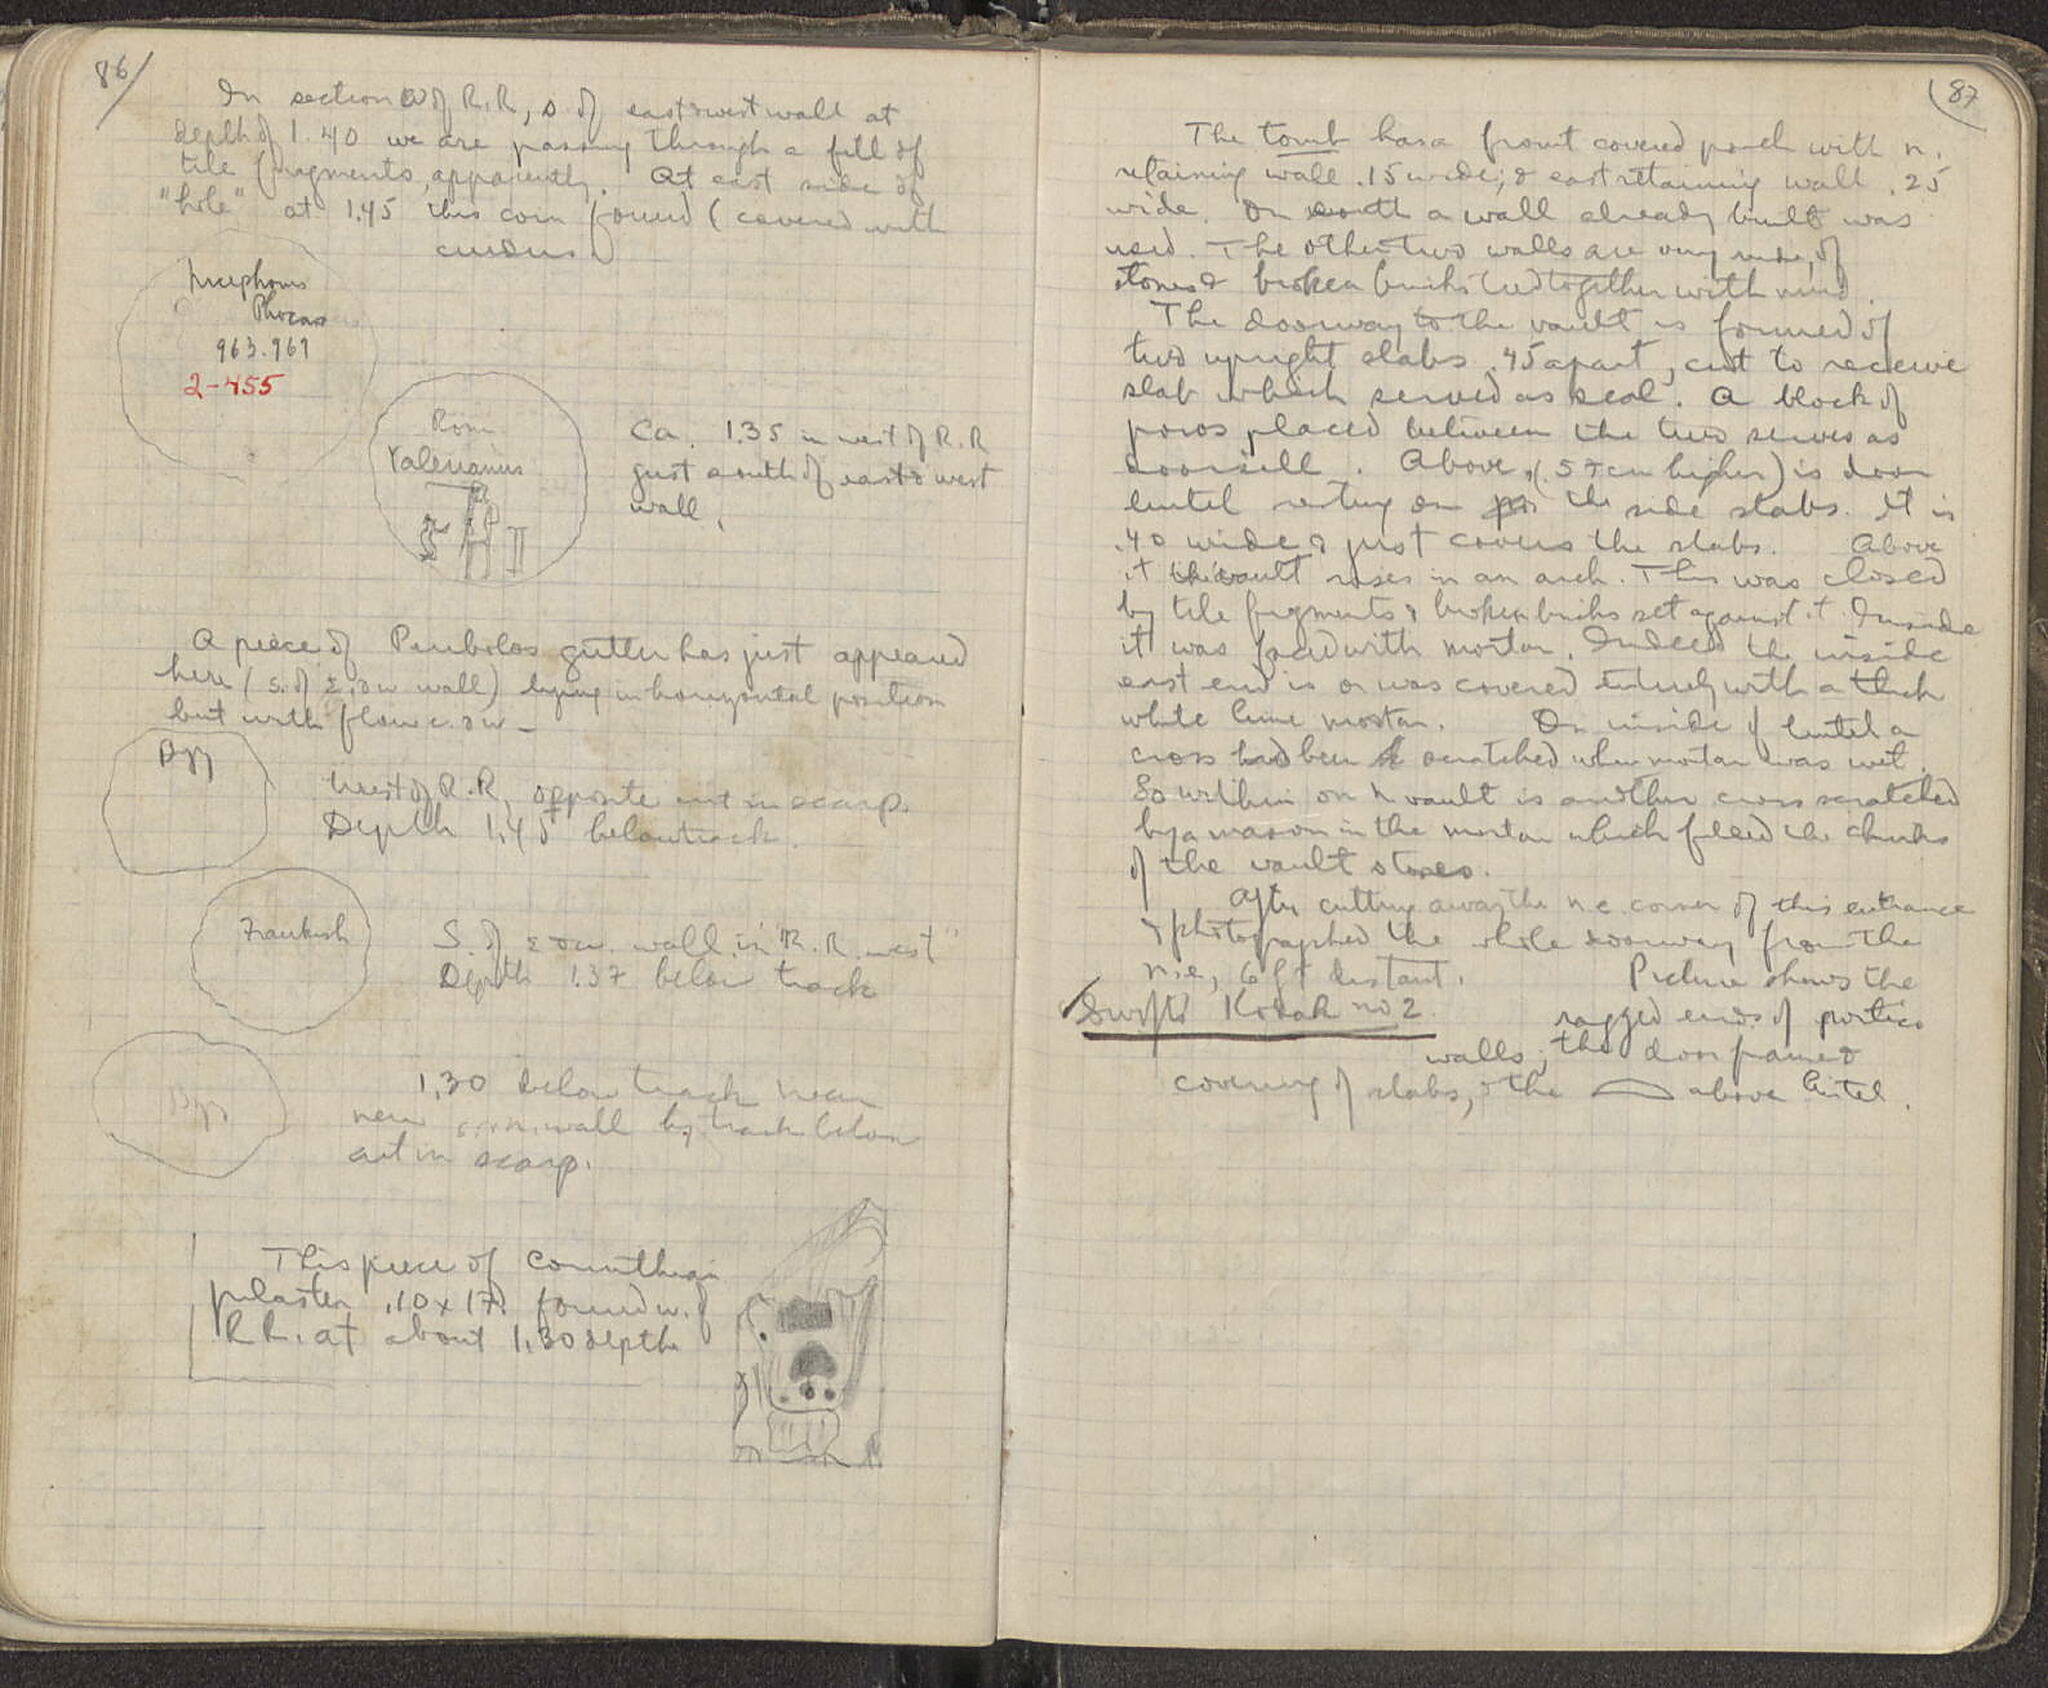 86
In section W of R.R, s of east & west wall at
depth of 1.40 we are passing through a fill of
tile fragments, apparently. At east side of
"hole" at 1.45 this coin found (covered with
Nicephorus
Phocas
963-969
2-455
Rom
Valerianus
Ca. 1.35 in west of R.R
just south of east & west
wall.
A piece of Peribolos gutter has just appeared
here (s. of E. & w wall) lying in horizontal position
but with flow e. & w -
Byz
West of R.R, opposite cut in scarp.
Depth 1.45 below track.
Frankish
S. of E & w. wall in "R.R. west"
Depth 1.37 below track
Byz
1.30 below track near
new wall by track below
cut in scarp.
This piece of Corinthian
pilaster .10 x 17 found w. of
R R. at about 1.30 depth
87
The tomb has a front covered porch with n.
retaining wall .15 wide; & east retaining wall .25
wide. On south a wall already built was
used. The other two walls are very rude, of
stones & broken bricks tied together with mud.
The doorway to the vault is formed of
two upright slabs .45 apart, cut to receive
slab which served as seal. A block of
poros placed between the two serves as
doorsill. Above, (.57cm higher) is door
lintel resting on the side slabs. It is
.40 wide & just covers the slabs. Above
it the vault rises in an arch. This was closed
by tile fragments & broken bricks set against it. Inside
it was faced with mortar. Indeed the inside
east end is or was covered entirely with a thick
white lime mortar. On inside of lintel a
cross had been scratched when mortar was wet.
So within on n vault is another cross scratched
by a mason in the mortar which filled the chinks
of the vault stones.
After cutting away the n.e. corner of this entrance
I photographed the whole doorway from the
n.e, 6 ft distant. Picture shows the
Swift's Kodak no 2. ragged ends of portico
walls; the door frame &
covering of slabs, & the above lintel.